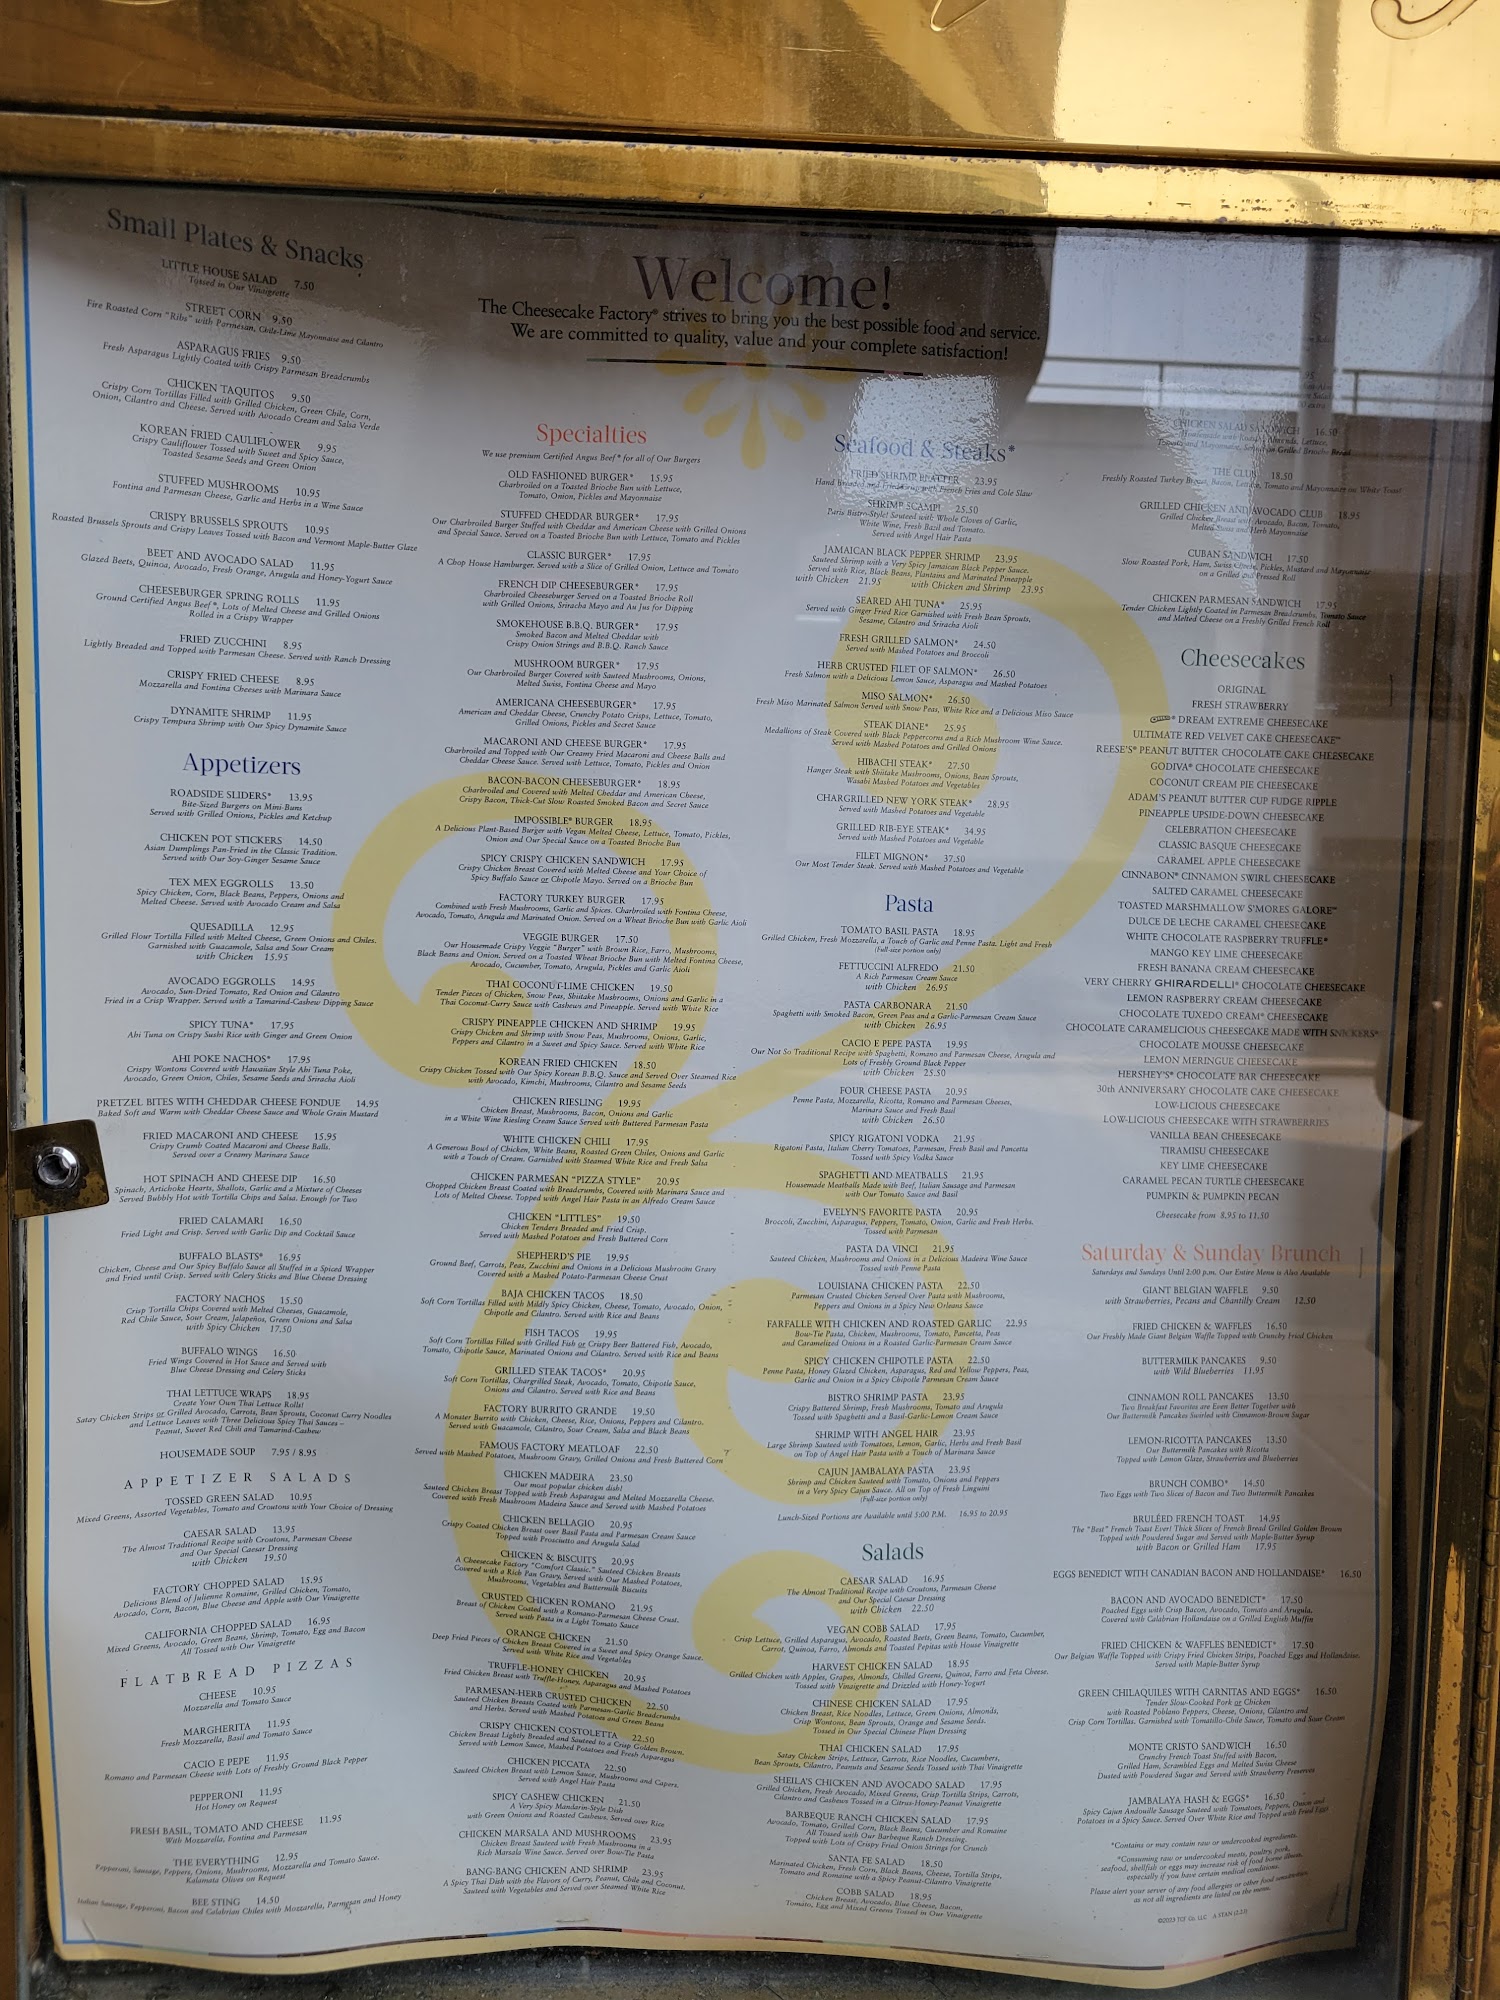 Small Plates & Snacks
LITTLE HOUSE SALAD 7.50
Tossed in Our Vinaigrette
STREET CORN 9.50
Fire Roasted Corn "Ribs" with Parmesan, Chile-Lime Mayonnaise and Cilantro
ASPARAGUS FRIES 9.50
Fresh Asparagus Lightly Coated with Crispy Parmesan Breadcrumbs
CHICKEN TAQUITOS 9.50
Crispy Corn Tortillas Filled with Grilled Chicken, Green Chile, Corn,
Onion, Cilantro and Cheese. Served with Avocado Cream and Salsa Verde
KOREAN FRIED CAULIFLOWER 9.95
Crispy Cauliflower Tossed with Sweet and Spicy Sauce,
Toasted Sesame Seeds and Green Onion
STUFFED MUSHROOMS 10.95
Fontina and Parmesan Cheese, Garlic and Herbs in a Wine Sauce
CRISPY BRUSSELS SPROUTS 10.95
Roasted Brussels Sprouts and Crispy Leaves Tossed with Bacon and Vermont Maple-Butter Glaze
BEET AND AVOCADO SALAD 11.95
Glazed Beets, Quinoa, Avocado, Fresh Orange, Arugula and Honey-Yogurt Sauce
CHEESEBURGER SPRING ROLLS 11.95
Ground Certified Angus Beef®, Lots of Melted Cheese and Grilled Onions
Rolled in a Crispy Wrapper
FRIED ZUCCHINI 8.95
Lightly Breaded and Topped with Parmesan Cheese. Served with Ranch Dressing
CRISPY FRIED CHEESE 8.95
Mozzarella and Fontina Cheeses with Marinara Sauce
DYNAMITE SHRIMP 11.95
Crispy Tempura Shrimp with Our Spicy Dynamite Sauce
Appetizers
ROADSIDE SLIDERS* 13.95
Bite-Sized Burgers on Mini-Buns
Served with Grilled Onions, Pickles and Ketchup
CHICKEN POT STICKERS 14.50
Asian Dumplings Pan-Fried in the Classic Tradition.
Served with Our Soy-Ginger Sesame Sauce
TEX MEX EGGROLLS 13.50
Spicy Chicken, Corn, Black Beans, Peppers, Onions and
Melted Cheese. Served with Avocado Cream and Salsa
QUESADILLA 12.95
Grilled Flour Tortilla Filled with Melted Cheese, Green Onions and Chiles.
Garnished with Guacamole, Salsa and Sour Cream
with Chicken 15.95
AVOCADO EGGROLLS 14.95
Avocado, Sun-Dried Tomato, Red Onion and Cilantro
Fried in a Crisp Wrapper. Served with a Tamarind-Cashew Dipping Sauce
SPICY TUNA* 17.95
Ahi Tuna on Crispy Sushi Rice with Ginger and Green Onion
AHI POKE NACHOS* 17.95
Crispy Wontons Covered with Hawaiian Style Ahi Tuna Poke,
Avocado, Green Onion, Chiles, Sesame Seeds and Sriracha Aioli
PRETZEL BITES WITH CHEDDAR CHEESE FONDUE 14.95
Baked Soft and Warm with Cheddar Cheese Sauce and Whole Grain Mustard
FRIED MACARONI AND CHEESE 15.95
Crispy Crumb Coated Macaroni and Cheese Balls.
Served over a Creamy Marinara Sauce
HOT SPINACH AND CHEESE DIP 16.50
Spinach, Artichoke Hearts, Shallots, Garlic and a Mixture of Cheeses
Served Bubbly Hot with Tortilla Chips and Salsa. Enough for Two
FRIED CALAMARI 16.50
Fried Light and Crisp. Served with Garlic Dip and Cocktail Sauce
BUFFALO BLASTS® 16.95
Chicken, Cheese and Our Spicy Buffalo Sauce all Stuffed in a Spiced Wrapper
and Fried until Crisp. Served with Celery Sticks and Blue Cheese Dressing
FACTORY NACHOS 15.50
Crisp Tortilla Chips Covered with Melted Cheeses, Guacamole,
Red Chile Sauce, Sour Cream, Jalapeños, Green Onions and Salsa
with Spicy Chicken 17.50
BUFFALO WINGS 16.50
Fried Wings Covered in Hot Sauce and Served with
Blue Cheese Dressing and Celery Sticks
THAI LETTUCE WRAPS 18.95
Create Your Own Thai Lettuce Rolls!
Satay Chicken Strips or Grilled Avocado, Carrots, Bean Sprouts, Coconut Curry Noodles
and Lettuce Leaves with Three Delicious Spicy Thai Sauces –
Peanut, Sweet Red Chili and Tamarind-Cashew
HOUSEMADE SOUP 7.95 / 8.95
APPETIZER SALADS
TOSSED GREEN SALAD 10.95
Mixed Greens, Assorted Vegetables, Tomato and Croutons with Your Choice of Dressing
CAESAR SALAD 13.95
The Almost Traditional Recipe with Croutons, Parmesan Cheese
and Our Special Caesar Dressing
with Chicken 19.50
FACTORY CHOPPED SALAD 15.95
Delicious Blend of Julienne Romaine, Grilled Chicken, Tomato,
Avocado, Corn, Bacon, Blue Cheese and Apple with Our Vinaigrette
CALIFORNIA CHOPPED SALAD 16.95
Mixed Greens, Avocado, Green Beans, Shrimp, Tomato, Egg and Bacon
All Tossed with Our Vinaigrette
FLATBREAD PIZZAS
CHEESE 10.95
Mozzarella and Tomato Sauce
MARGHERITA 11.95
Fresh Mozzarella, Basil and Tomato Sauce
CACIO E PEPE 11.95
Romano and Parmesan Cheese with Lots of Freshly Ground Black Pepper
PEPPERONI 11.95
Hot Honey on Request
FRESH BASIL, TOMATO AND CHEESE 11.95
With Mozzarella, Fontina and Parmesan
THE EVERYTHING 12.95
Pepperoni, Sausage, Peppers, Onions, Mushrooms, Mozzarella and Tomato Sauce.
Kalamata Olives on Request
BEE STING 14.50
Italian Sausage, Pepperoni, Bacon and Calabrian Chiles with Mozzarella, Parmesan and Honey
Welcome!
The Cheesecake Factory® strives to bring you the best possible food and service.
We are committed to quality, value and your complete satisfaction!
Specialties
We use premium Certified Angus Beef® for all of Our Burgers
OLD FASHIONED BURGER* 15.95
Charbroiled on a Toasted Brioche Bun with Lettuce,
Tomato, Onion, Pickles and Mayonnaise
STUFFED CHEDDAR BURGER* 17.95
Our Charbroiled Burger Stuffed with Cheddar and American Cheese with Grilled Onions
and Special Sauce. Served on a Toasted Brioche Bun with Lettuce, Tomato and Pickles
CLASSIC BURGER* 17.95
A Chop House Hamburger. Served with a Slice of Grilled Onion, Lettuce and Tomato
FRENCH DIP CHEESEBURGER* 17.95
Charbroiled Cheeseburger Served on a Toasted Brioche Roll
with Grilled Onions, Sriracha Mayo and Au Jus for Dipping
SMOKEHOUSE B.B.Q. BURGER* 17.95
Smoked Bacon and Melted Cheddar with
Crispy Onion Strings and B.B.Q. Ranch Sauce
MUSHROOM BURGER* 17.95
Our Charbroiled Burger Covered with Sauteed Mushrooms, Onions,
Melted Swiss, Fontina Cheese and Mayo
AMERICANA CHEESEBURGER* 17.95
American and Cheddar Cheese, Crunchy Potato Crisps, Lettuce, Tomato,
Grilled Onions, Pickles and Secret Sauce
MACARONI AND CHEESE BURGER* 17.95
Charbroiled and Topped with Our Creamy Fried Macaroni and Cheese Balls and
Cheddar Cheese Sauce. Served with Lettuce, Tomato, Pickles and Onion
BACON-BACON CHEESEBURGER* 18.95
Charbroiled and Covered with Melted Cheddar and American Cheese,
Crispy Bacon, Thick-Cut Slow Roasted Smoked Bacon and Secret Sauce
IMPOSSIBLE® BURGER 18.95
A Delicious Plant-Based Burger with Vegan Melted Cheese, Lettuce, Tomato, Pickles,
Onion and Our Special Sauce on a Toasted Brioche Bun
SPICY CRISPY CHICKEN SANDWICH 17.95
Crispy Chicken Breast Covered with Melted Cheese and Your Choice of
Spicy Buffalo Sauce or Chipotle Mayo. Served on a Brioche Bun
FACTORY TURKEY BURGER 17.95
Combined with Fresh Mushrooms, Garlic and Spices. Charbroiled with Fontina Cheese,
Avocado, Tomato, Arugula and Marinated Onion. Served on a Wheat Brioche Bun with Garlic Aioli
VEGGIE BURGER 17.50
Our Housemade Crispy Veggie "Burger" with Brown Rice, Farro, Mushrooms,
Black Beans and Onion. Served on a Toasted Wheat Brioche Bun with Melted Fontina Cheese,
Avocado, Cucumber, Tomato, Arugula, Pickles and Garlic Aioli
THAI COCONUT-LIME CHICKEN 19.50
Tender Pieces of Chicken, Snow Peas, Shiitake Mushrooms, Onions and Garlic in a
Thai Coconut-Curry Sauce with Cashews and Pineapple. Served with White Rice
CRISPY PINEAPPLE CHICKEN AND SHRIMP 19.95
Crispy Chicken and Shrimp with Snow Peas, Mushrooms, Onions, Garlic,
Peppers and Cilantro in a Sweet and Spicy Sauce. Served with White Rice
KOREAN FRIED CHICKEN 18.50
Crispy Chicken Tossed with Our Spicy Korean B.B.Q. Sauce and Served Over Steamed Rice
with Avocado, Kimchi, Mushrooms, Cilantro and Sesame Seeds
CHICKEN RIESLING 19.95
Chicken Breast, Mushrooms, Bacon, Onions and Garlic
in a White Wine Riesling Cream Sauce Served with Buttered Parmesan Pasta
WHITE CHICKEN CHILI 17.95
A Generous Bowl of Chicken, White Beans, Roasted Green Chiles, Onions and Garlic
with a Touch of Cream. Garnished with Steamed White Rice and Fresh Salsa
CHICKEN PARMESAN "PIZZA STYLE" 20.95
Chopped Chicken Breast Coated with Breadcrumbs, Covered with Marinara Sauce and
Lots of Melted Cheese. Topped with Angel Hair Pasta in an Alfredo Cream Sauce
CHICKEN "LITTLES" 19.50
Chicken Tenders Breaded and Fried Crisp.
Served with Mashed Potatoes and Fresh Buttered Corn
SHEPHERD'S PIE 19.95
Ground Beef, Carrots, Peas, Zucchini and Onions in a Delicious Mushroom Gravy
Covered with a Mashed Potato-Parmesan Cheese Crust
BAJA CHICKEN TACOS 18.50
Soft Corn Tortillas Filled with Mildly Spicy Chicken, Cheese, Tomato, Avocado, Onion,
Chipotle and Cilantro. Served with Rice and Beans
FISH TACOS 19.95
Soft Corn Tortillas Filled with Grilled Fish or Crispy Beer Battered Fish, Avocado,
Tomato, Chipotle Sauce, Marinated Onions and Cilantro. Served with Rice and Beans
GRILLED STEAK TACOS* 20.95
Soft Corn Tortillas, Chargrilled Steak, Avocado, Tomato, Chipotle Sauce,
Onions and Cilantro. Served with Rice and Beans
FACTORY BURRITO GRANDE 19.50
A Monster Burrito with Chicken, Cheese, Rice, Onions, Peppers and Cilantro.
Served with Guacamole, Cilantro, Sour Cream, Salsa and Black Beans
FAMOUS FACTORY MEATLOAF 22.50
Served with Mashed Potatoes, Mushroom Gravy, Grilled Onions and Fresh Buttered Corn
CHICKEN MADEIRA 23.50
Our most popular chicken dish!
Sauteed Chicken Breast Topped with Fresh Asparagus and Melted Mozzarella Cheese.
Covered with Fresh Mushroom Madeira Sauce and Served with Mashed Potatoes
CHICKEN BELLAGIO 20.95
Crispy Coated Chicken Breast over Basil Pasta and Parmesan Cream Sauce
Topped with Prosciutto and Arugula Salad
CHICKEN & BISCUITS 20.95
A Cheesecake Factory "Comfort Classic." Sauteed Chicken Breasts
Covered with a Rich Pan Gravy, Served with Our Mashed Potatoes,
Mushrooms, Vegetables and Buttermilk Biscuits
CRUSTED CHICKEN ROMANO 21.95
Breast of Chicken Coated with a Romano-Parmesan Cheese Crust.
Served with Pasta in a Light Tomato Sauce
ORANGE CHICKEN 21.50
Deep Fried Pieces of Chicken Breast Covered in a Sweet and Spicy Orange Sauce.
Served with White Rice and Vegetables
TRUFFLE-HONEY CHICKEN 20.95
Fried Chicken Breast with Truffle-Honey, Asparagus and Mashed Potatoes
PARMESAN-HERB CRUSTED CHICKEN 22.50
Sauteed Chicken Breasts Coated with Parmesan-Garlic Breadcrumbs
and Herbs. Served with Mashed Potatoes and Green Beans
CRISPY CHICKEN COSTOLETTA 22.50
Chicken Breast Lightly Breaded and Sauteed to a Crisp Golden Brown.
Served with Lemon Sauce, Mashed Potatoes and Fresh Asparagus
CHICKEN PICCATA 22.50
Sauteed Chicken Breast with Lemon Sauce, Mushrooms and Capers.
Served with Angel Hair Pasta
SPICY CASHEW CHICKEN 21.50
A Very Spicy Mandarin-Style Dish
with Green Onions and Roasted Cashews. Served over Rice
CHICKEN MARSALA AND MUSHROOMS 23.95
Chicken Breast Sauteed with Fresh Mushrooms in a
Rich Marsala Wine Sauce. Served over Bow-Tie Pasta
BANG-BANG CHICKEN AND SHRIMP 23.95
A Spicy Thai Dish with the Flavors of Curry, Peanut, Chile and Coconut.
Sauteed with Vegetables and Served over Steamed White Rice
Seafood & Steaks*
FRIED SHRIMP PLATTER 23.95
Hand Breaded and Fried Crisp with French Fries and Cole Slaw
SHRIMP SCAMPI 25.50
Paris Bistro-Style! Sauteed with Whole Cloves of Garlic,
White Wine, Fresh Basil and Tomato.
Served with Angel Hair Pasta
JAMAICAN BLACK PEPPER SHRIMP 23.95
Sauteed Shrimp with a Very Spicy Jamaican Black Pepper Sauce.
Served with Rice, Black Beans, Plantains and Marinated Pineapple
with Chicken 21.95 with Chicken and Shrimp 23.95
SEARED AHI TUNA* 25.95
Served with Ginger Fried Rice Garnished with Fresh Bean Sprouts,
Sesame, Cilantro and Sriracha Aioli
FRESH GRILLED SALMON* 24.50
Served with Mashed Potatoes and Broccoli
HERB CRUSTED FILET OF SALMON* 26.50
Fresh Salmon with a Delicious Lemon Sauce, Asparagus and Mashed Potatoes
MISO SALMON* 26.50
Fresh Miso Marinated Salmon Served with Snow Peas, White Rice and a Delicious Miso Sauce
STEAK DIANE* 25.95
Medallions of Steak Covered with Black Peppercorns and a Rich Mushroom Wine Sauce.
Served with Mashed Potatoes and Grilled Onions
HIBACHI STEAK* 27.50
Hanger Steak with Shiitake Mushrooms, Onions, Bean Sprouts,
Wasabi Mashed Potatoes and Vegetables
CHARGRILLED NEW YORK STEAK* 28.95
Served with Mashed Potatoes and Vegetable
GRILLED RIB-EYE STEAK* 34.95
Served with Mashed Potatoes and Vegetable
FILET MIGNON* 37.50
Our Most Tender Steak. Served with Mashed Potatoes and Vegetable
Pasta
TOMATO BASIL PASTA 18.95
Grilled Chicken, Fresh Mozzarella, a Touch of Garlic and Penne Pasta. Light and Fresh
(Full-size portion only)
FETTUCCINI ALFREDO 21.50
A Rich Parmesan Cream Sauce
with Chicken 26.95
PASTA CARBONARA 21.50
Spaghetti with Smoked Bacon, Green Peas and a Garlic-Parmesan Cream Sauce
with Chicken 26.95
CACIO E PEPE PASTA 19.95
Our Not So Traditional Recipe with Spaghetti, Romano and Parmesan Cheese, Arugula and
Lots of Freshly Ground Black Pepper
with Chicken 25.50
FOUR CHEESE PASTA 20.95
Penne Pasta, Mozzarella, Ricotta, Romano and Parmesan Cheeses,
Marinara Sauce and Fresh Basil
with Chicken 26.50
SPICY RIGATONI VODKA 21.95
Rigatoni Pasta, Italian Cherry Tomatoes, Parmesan, Fresh Basil and Pancetta
Tossed with Spicy Vodka Sauce
SPAGHETTI AND MEATBALLS 21.95
Housemade Meatballs Made with Beef, Italian Sausage and Parmesan
with Our Tomato Sauce and Basil
EVELYN'S FAVORITE PASTA 20.95
Broccoli, Zucchini, Asparagus, Peppers, Tomato, Onion, Garlic and Fresh Herbs.
Tossed with Parmesan
PASTA DA VINCI 21.95
Sauteed Chicken, Mushrooms and Onions in a Delicious Madeira Wine Sauce
Tossed with Penne Pasta
LOUISIANA CHICKEN PASTA 22.50
Parmesan Crusted Chicken Served Over Pasta with Mushrooms,
Peppers and Onions in a Spicy New Orleans Sauce
FARFALLE WITH CHICKEN AND ROASTED GARLIC 22.95
Bow-Tie Pasta, Chicken, Mushrooms, Tomato, Pancetta, Peas
and Caramelized Onions in a Roasted Garlic-Parmesan Cream Sauce
SPICY CHICKEN CHIPOTLE PASTA 22.50
Penne Pasta, Honey Glazed Chicken, Asparagus, Red and Yellow Peppers, Peas,
Garlic and Onion in a Spicy Chipotle Parmesan Cream Sauce
BISTRO SHRIMP PASTA 23.95
Crispy Battered Shrimp, Fresh Mushrooms, Tomato and Arugula
Tossed with Spaghetti and a Basil-Garlic-Lemon Cream Sauce
SHRIMP WITH ANGEL HAIR 23.95
Large Shrimp Sauteed with Tomatoes, Lemon, Garlic, Herbs and Fresh Basil
on Top of Angel Hair Pasta with a Touch of Marinara Sauce
CAJUN JAMBALAYA PASTA 23.95
Shrimp and Chicken Sauteed with Tomato, Onions and Peppers
in a Very Spicy Cajun Sauce. All on Top of Fresh Linguini
(Full-size portion only)
Lunch-Sized Portions are Available until 5:00 P.M. 16.95 to 20.95
Salads
CAESAR SALAD 16.95
The Almost Traditional Recipe with Croutons, Parmesan Cheese
and Our Special Caesar Dressing
with Chicken 22.50
VEGAN COBB SALAD 17.95
Crisp Lettuce, Grilled Asparagus, Avocado, Roasted Beets, Green Beans, Tomato, Cucumber,
Carrot, Quinoa, Farro, Almonds and Toasted Pepitas with House Vinaigrette
HARVEST CHICKEN SALAD 18.95
Grilled Chicken with Apples, Grapes, Almonds, Chilled Greens, Quinoa, Farro and Feta Cheese.
Tossed with Vinaigrette and Drizzled with Honey-Yogurt
CHINESE CHICKEN SALAD 17.95
Chicken Breast, Rice Noodles, Lettuce, Green Onions, Almonds,
Crisp Wontons, Bean Sprouts, Orange and Sesame Seeds.
Tossed in Our Special Chinese Plum Dressing
THAI CHICKEN SALAD 17.95
Satay Chicken Strips, Lettuce, Carrots, Rice Noodles, Cucumbers,
Bean Sprouts, Cilantro, Peanuts and Sesame Seeds Tossed with Thai Vinaigrette
SHEILA'S CHICKEN AND AVOCADO SALAD 17.95
Grilled Chicken, Fresh Avocado, Mixed Greens, Crisp Tortilla Strips, Carrots,
Cilantro and Cashews Tossed in a Citrus-Honey-Peanut Vinaigrette
BARBEQUE RANCH CHICKEN SALAD 17.95
Avocado, Tomato, Grilled Corn, Black Beans, Cucumber and Romaine
All Tossed with Our Barbeque Ranch Dressing.
Topped with Lots of Crispy Fried Onion Strings for Crunch
SANTA FE SALAD 18.50
Marinated Chicken, Fresh Corn, Black Beans, Cheese, Tortilla Strips,
Tomato and Romaine with a Spicy Peanut-Cilantro Vinaigrette
COBB SALAD 18.95
Chicken Breast, Avocado, Blue Cheese, Bacon,
Tomato, Egg and Mixed Greens Tossed in Our Vinaigrette
CHICKEN SALAD SANDWICH 16.50
Homemade with Roasted Almonds, Lettuce,
Tomato and Mayonnaise, Served on Grilled Brioche Bread
THE CLUB 18.50
Freshly Roasted Turkey Breast, Bacon, Lettuce, Tomato and Mayonnaise on White Toast
GRILLED CHICKEN AND AVOCADO CLUB 18.95
Grilled Chicken Breast with Avocado, Bacon, Tomato,
Melted Swiss and Herb Mayonnaise
CUBAN SANDWICH 17.50
Slow Roasted Pork, Ham, Swiss Cheese, Pickles, Mustard and Mayonnaise
on a Grilled and Pressed Roll
CHICKEN PARMESAN SANDWICH 17.95
Tender Chicken Lightly Coated in Parmesan Breadcrumbs, Tomato Sauce
and Melted Cheese on a Freshly Grilled French Roll
Cheesecakes
ORIGINAL
FRESH STRAWBERRY
DREAM EXTREME CHEESECAKE
ULTIMATE RED VELVET CAKE CHEESECAKE™
REESE'S® PEANUT BUTTER CHOCOLATE CAKE CHEESECAKE
GODIVA® CHOCOLATE CHEESECAKE
COCONUT CREAM PIE CHEESECAKE
ADAM'S PEANUT BUTTER CUP FUDGE RIPPLE
PINEAPPLE UPSIDE-DOWN CHEESECAKE
CELEBRATION CHEESECAKE
CLASSIC BASQUE CHEESECAKE
CARAMEL APPLE CHEESECAKE
CINNABON® CINNAMON SWIRL CHEESECAKE
SALTED CARAMEL CHEESECAKE
TOASTED MARSHMALLOW S'MORES GALORE™
DULCE DE LECHE CARAMEL CHEESECAKE
WHITE CHOCOLATE RASPBERRY TRUFFLE®
MANGO KEY LIME CHEESECAKE
FRESH BANANA CREAM CHEESECAKE
VERY CHERRY GHIRARDELLI® CHOCOLATE CHEESECAKE
LEMON RASPBERRY CREAM CHEESECAKE
CHOCOLATE TUXEDO CREAM® CHEESECAKE
CHOCOLATE CARAMELICIOUS CHEESECAKE MADE WITH SNICKERS®
CHOCOLATE MOUSSE CHEESECAKE
LEMON MERINGUE CHEESECAKE
HERSHEY'S® CHOCOLATE BAR CHEESECAKE
30th ANNIVERSARY CHOCOLATE CAKE CHEESECAKE
LOW-LICIOUS CHEESECAKE
LOW-LICIOUS CHEESECAKE WITH STRAWBERRIES
VANILLA BEAN CHEESECAKE
TIRAMISU CHEESECAKE
KEY LIME CHEESECAKE
CARAMEL PECAN TURTLE CHEESECAKE
PUMPKIN & PUMPKIN PECAN
Cheesecake from 8.95 to 11.50
Saturday & Sunday Brunch
Saturdays and Sundays Until 2:00 p.m. Our Entire Menu is Also Available
GIANT BELGIAN WAFFLE 9.50
with Strawberries, Pecans and Chantilly Cream 12.50
FRIED CHICKEN & WAFFLES 16.50
Our Freshly Made Giant Belgian Waffle Topped with Crunchy Fried Chicken
BUTTERMILK PANCAKES 9.50
with Wild Blueberries 11.95
CINNAMON ROLL PANCAKES 13.50
Two Breakfast Favorites are Even Better Together with
Our Buttermilk Pancakes Swirled with Cinnamon-Brown Sugar
LEMON-RICOTTA PANCAKES 13.50
Our Buttermilk Pancakes with Ricotta
Topped with Lemon Glaze, Strawberries and Blueberries
BRUNCH COMBO* 14.50
Two Eggs with Two Slices of Bacon and Two Buttermilk Pancakes
BRULÉED FRENCH TOAST 14.95
The "Best" French Toast Ever! Thick Slices of French Bread Grilled Golden Brown
Topped with Powdered Sugar and Served with Maple-Butter Syrup
with Bacon or Grilled Ham 17.95
EGGS BENEDICT WITH CANADIAN BACON AND HOLLANDAISE* 16.50
BACON AND AVOCADO BENEDICT* 17.50
Poached Eggs with Crisp Bacon, Avocado, Tomato and Arugula.
Covered with Calabrian Hollandaise on a Grilled English Muffin
FRIED CHICKEN & WAFFLES BENEDICT* 17.50
Our Belgian Waffle Topped with Crispy Fried Chicken Strips, Poached Eggs and Hollandaise.
Served with Maple-Butter Syrup
GREEN CHILAQUILES WITH CARNITAS AND EGGS* 16.50
Tender Slow-Cooked Pork or Chicken
with Roasted Poblano Peppers, Cheese, Onions, Cilantro and
Crisp Corn Tortillas. Garnished with Tomatillo-Chile Sauce, Tomato and Sour Cream
MONTE CRISTO SANDWICH 16.50
Crunchy French Toast Stuffed with Bacon,
Grilled Ham, Scrambled Eggs and Melted Swiss Cheese
Dusted with Powdered Sugar and Served with Strawberry Preserves
JAMBALAYA HASH & EGGS* 16.50
Spicy Cajun Andouille Sausage Sauteed with Tomatoes, Peppers, Onion and
Potatoes in a Spicy Sauce. Served Over White Rice and Topped with Fried Eggs
*Contains or may contain raw or undercooked ingredients.
*Consuming raw or undercooked meats, poultry, pork,
seafood, shellfish or eggs may increase risk of food borne illness,
especially if you have certain medical conditions.
Please alert your server of any food allergies or other food sensitivities
as not all ingredients are listed on the menu.
©2023 TCF Co. LLC